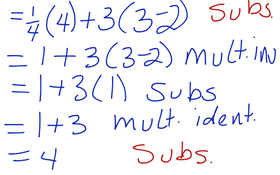 =1/4(4)+3(3-2) Subs.
=1+3(3-2) mult.inv
=1+3(1) Subs
=1+3 mult. ident.
=4 Subs.